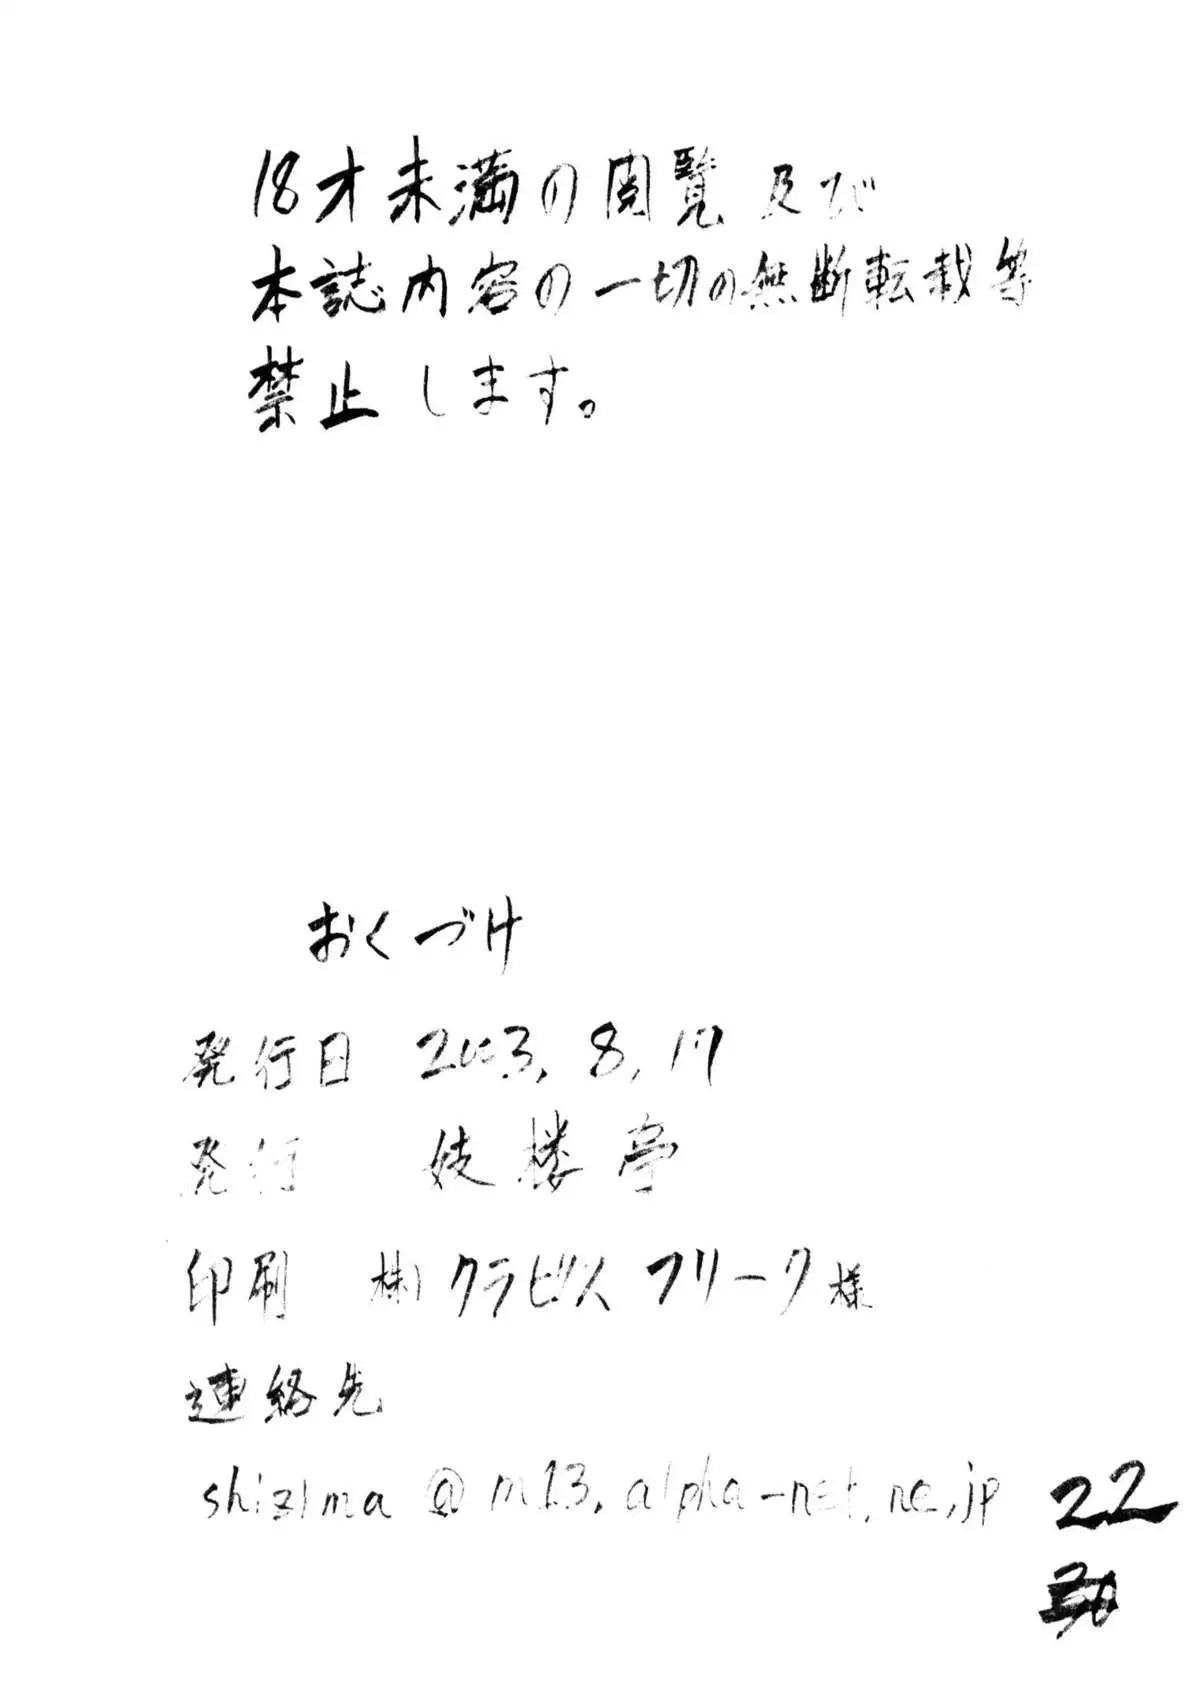 18才未満の閲覧及び
本誌内容の一切の無断転載等
禁止します。
おくづけ
発行日 2003.8.17
発行 妓楼亭
印刷 ㈱クラビズムフリーク様
連絡先
shizima@m13.alpha-net.ne.jp
22